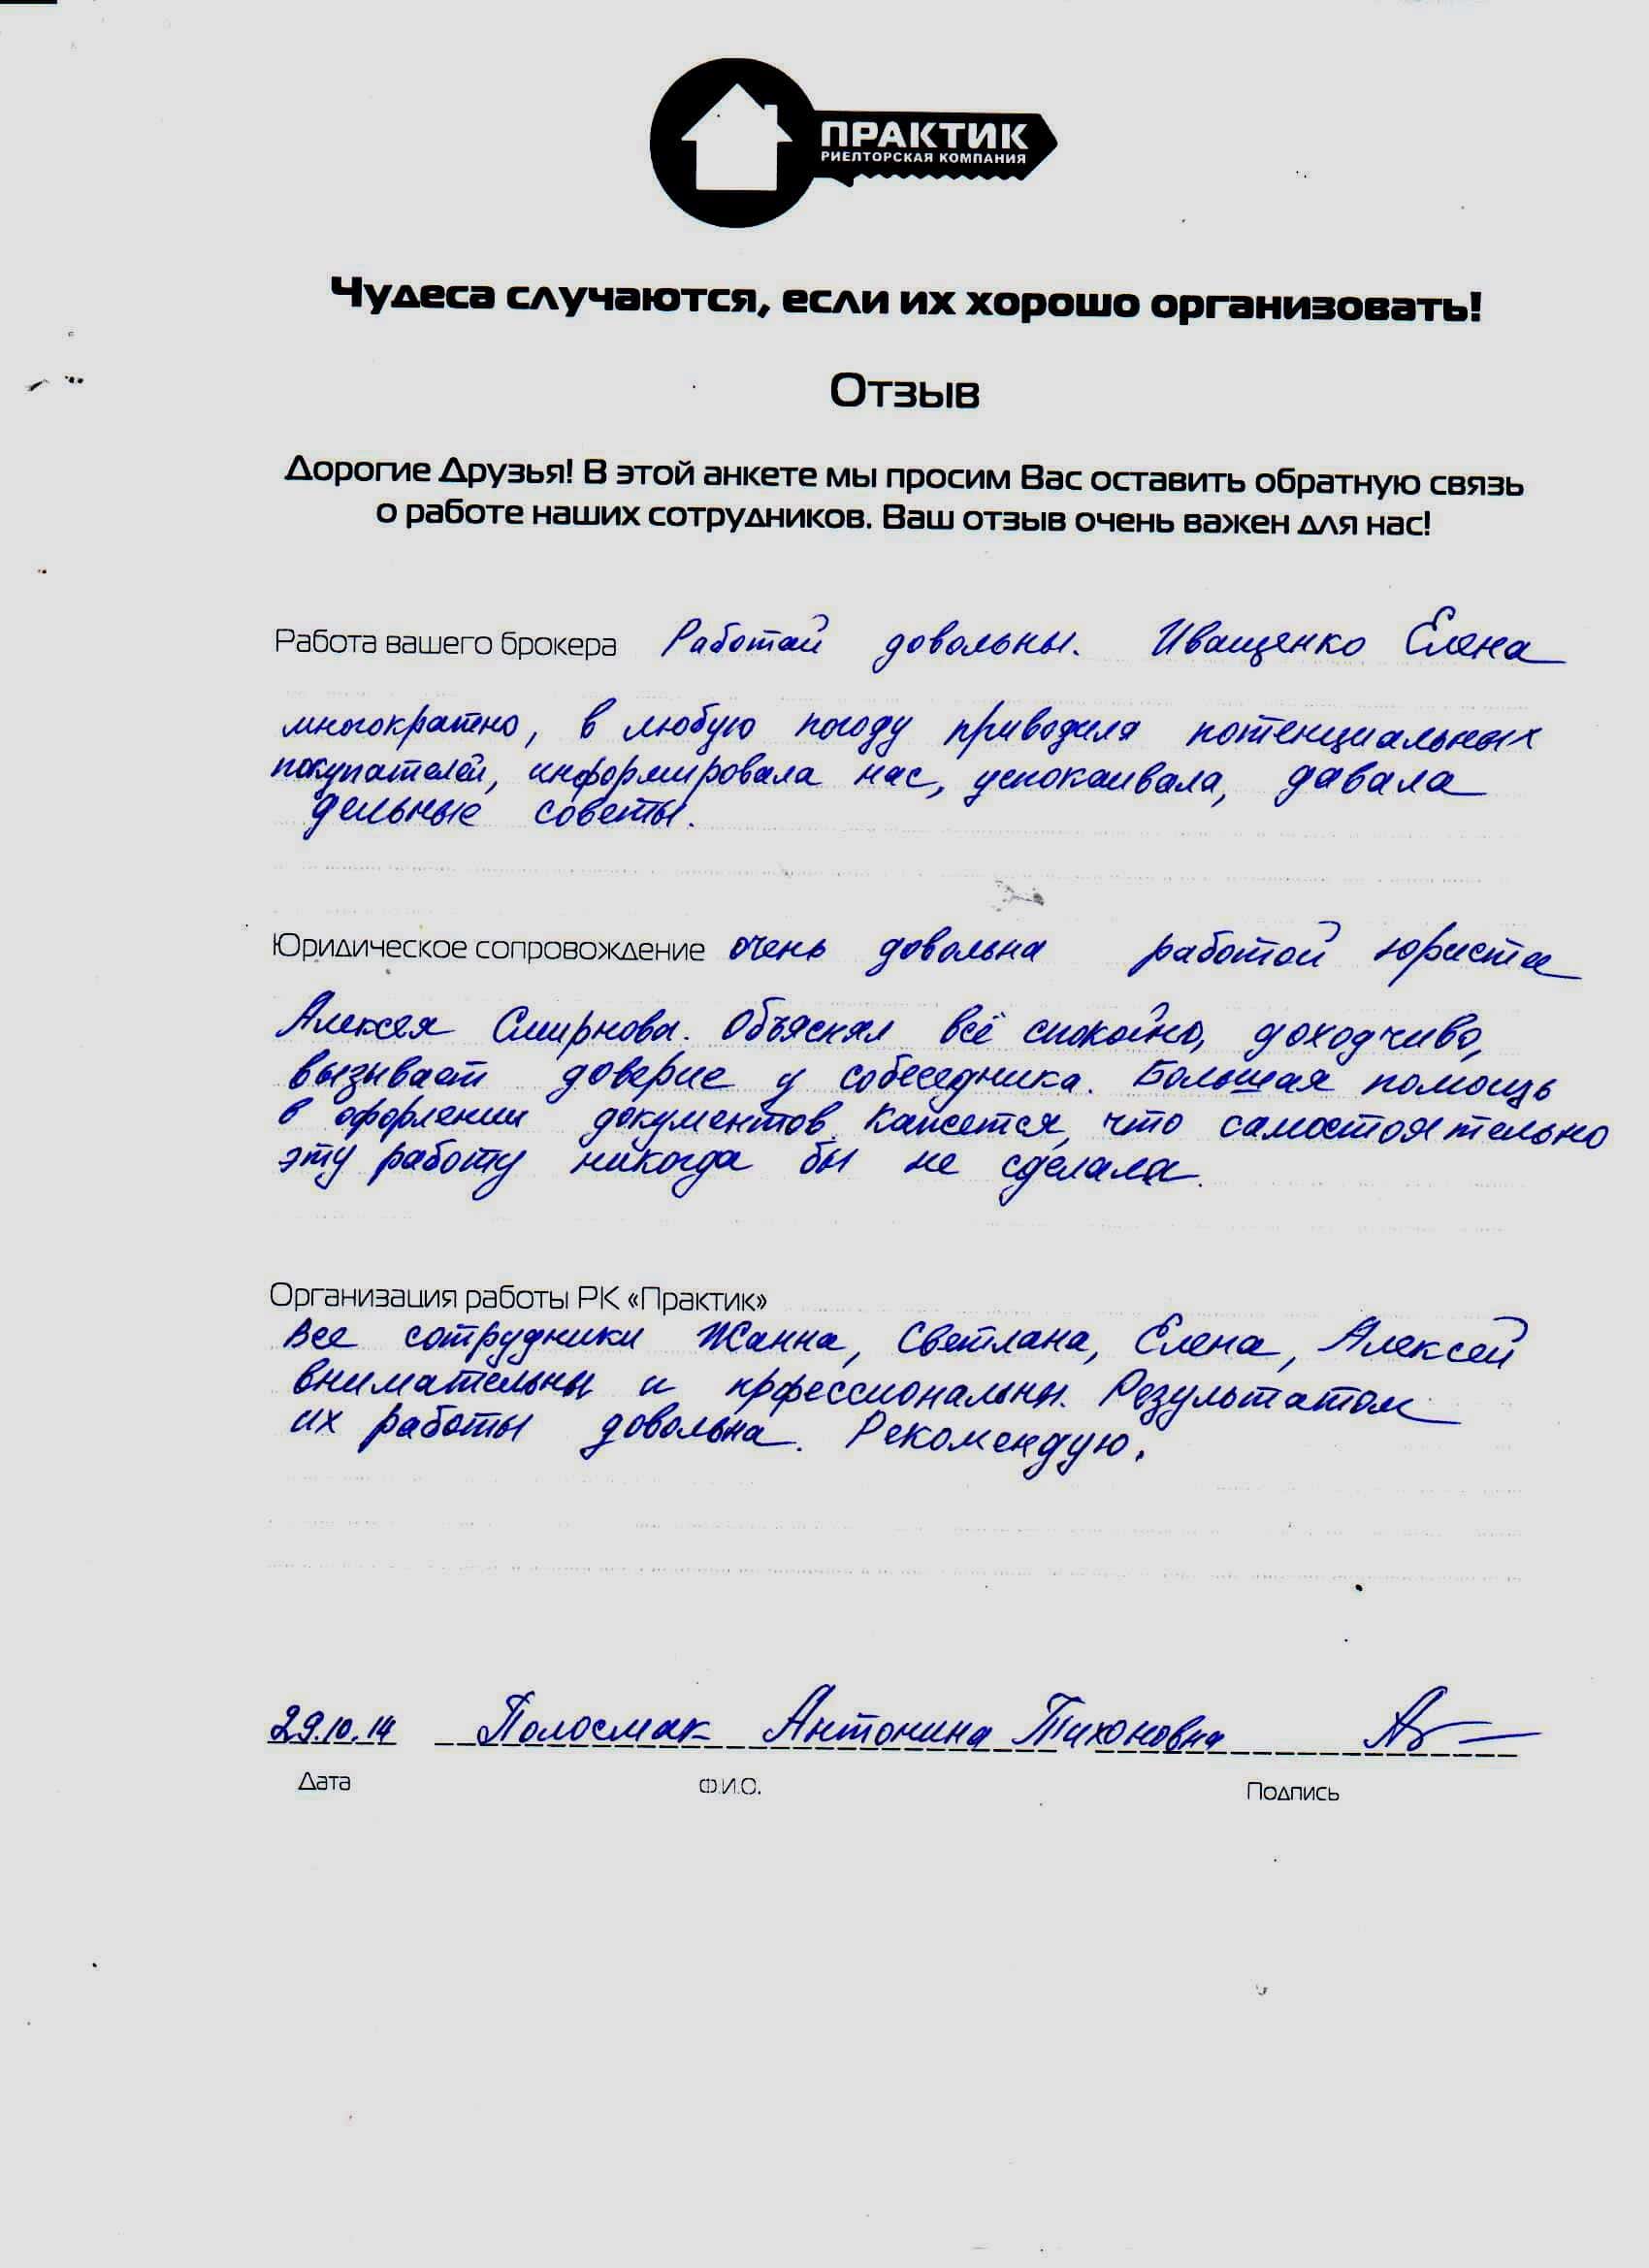 ПРАКТИК
РИЕЛТОРСКАЯ КОМПАНИЯ
Чудеса случаются, если их хорошо организовать!
Отзыв
Дорогие Друзья! В этой анкете мы просим Вас оставить обратную связь
о работе наших сотрудников. Ваш отзыв очень важен для нас!
Работа вашего брокера Работай довольны. Иващенко Елена
многократно, в любую погоду приводила потенциальных
покупателей, информировала нас, успокаивала, давала
дельные советы.
Юридическое сопровождение очень довольна работой юриста
Алексея Смирнова. Объяснял всё спокойно, доходчиво,
вызывает доверие у собеседника. Большая помощь
в офорлении документов. Кажется, что самостоятельно
эту работу никогда бы не сделала.
Организация работы РК «Практик»
Все сотрудники Жанна, Светлана, Елена, Алексей
внимательны и прфессиональны. Результатом
их работы довольна. Рекомендую.
29.10.14 Полосмак Антонина Тихоновна
Дата Ф.И.О. Подпись